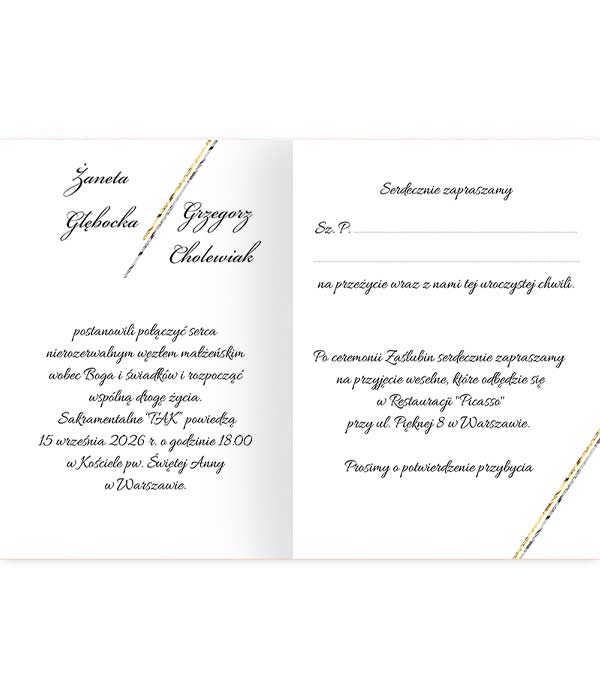 Żaneta
Głębocka
Grzegorz
Cholewiak
postanowili połączyć serca
nierozerwalnym węzłem małżeńskim
wobec Boga i świadków i rozpocząć
wspólną drogę życia.
Sakramentalne "TAK" powiedzą
15 września 2026 r. o godzinie 18.00
w Kościele pw. Świętej Anny
w Warszawie.
Serdecznie zapraszamy
Sz. P.
na przeżycie wraz z nami tej uroczystej chwili.
Po ceremonii Zaślubin serdecznie zapraszamy
na przyjęcie weselne, które odbędzie się
w Restauracji "Picasso"
przy ul. Pięknej 8 w Warszawie.
Prosimy o potwierdzenie przybycia